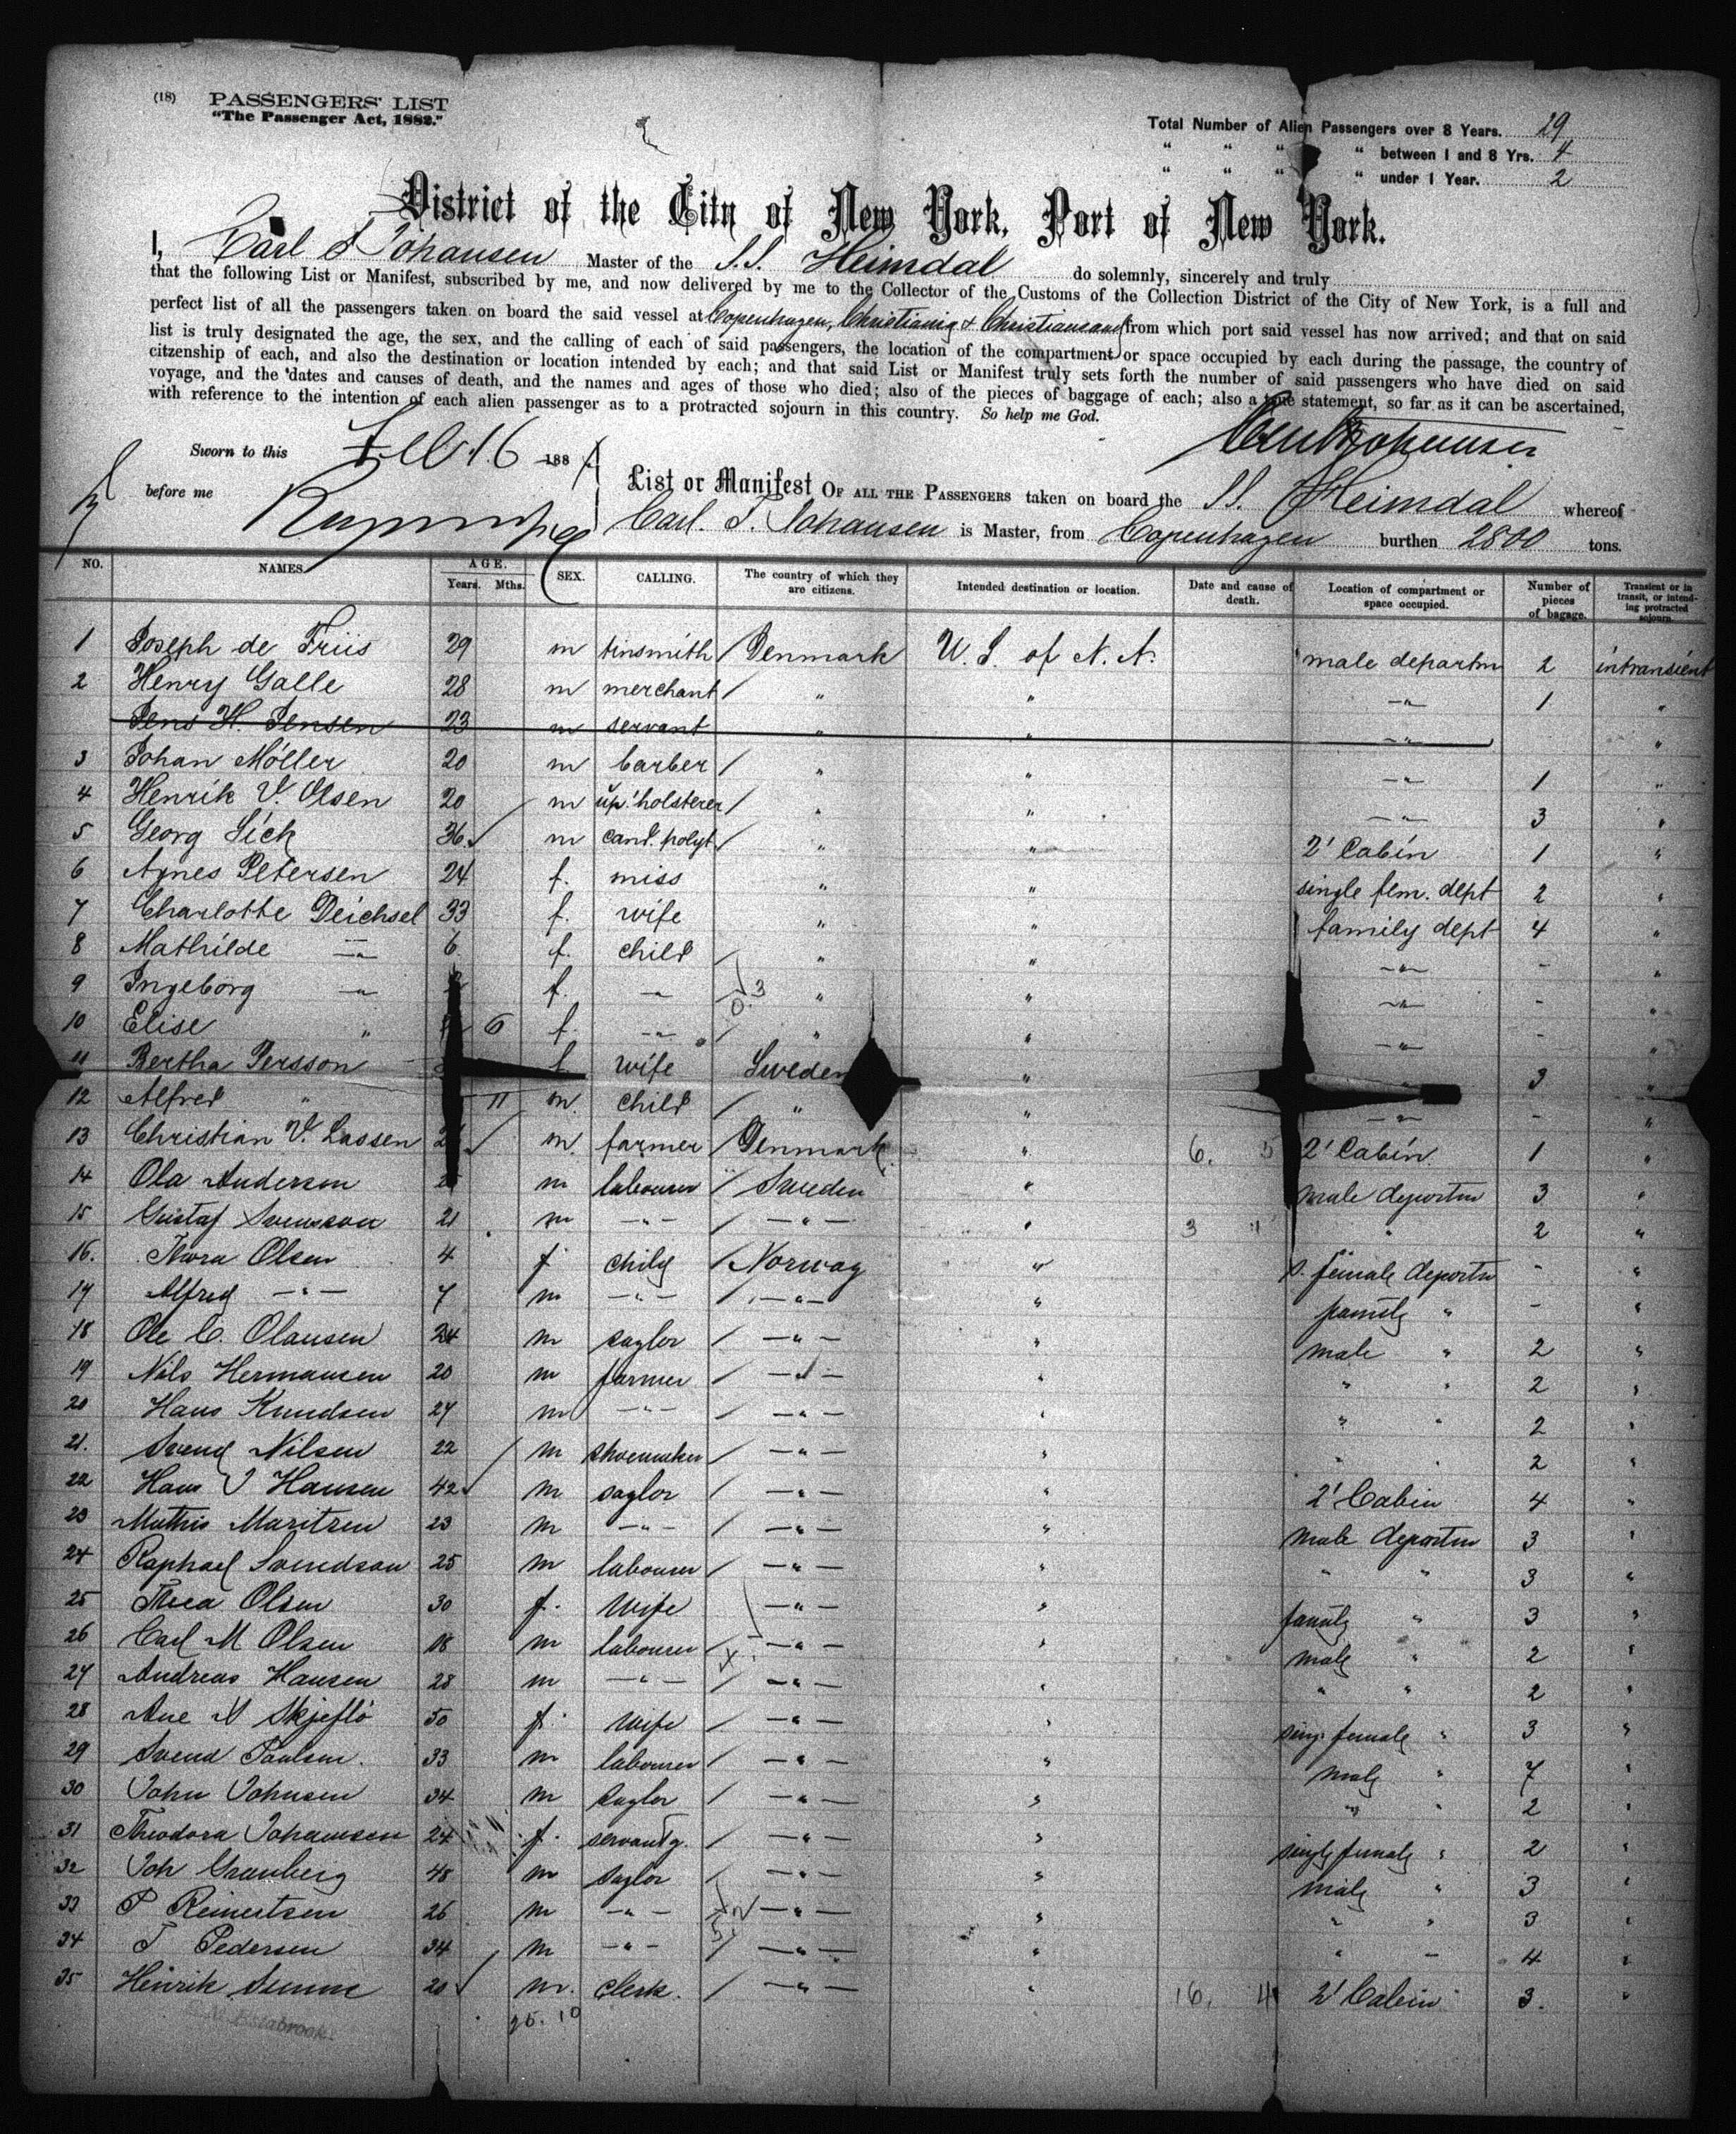 (18) PASSENGERS' LIST
"The Passenger Act, 1882."
Total Number of Alien Passengers over 8 Years. 29
" " " " between 1 and 8 Yrs. 4
" " " " under 1 Year. 2
District of the City of New York, Port of New York.
I, Carl F Johansen Master of the S.S. Heimdal do solemnly, sincerely and truly
that the following List or Manifest, subscribed by me, and now delivered by me to the Collector of the Customs of the Collection District of the City of New York, is a full and
perfect list of all the passengers taken on board the said vessel at Copenhagen, Christiania & Christiansand from which port said vessel has now arrived; and that on said
list is truly designated the age, the sex, and the calling of each of said passengers, the location of the compartment or space occupied by each during the passage, the country of
citzenship of each, and also the destination or location intended by each; and that said List or Manifest truly sets forth the number of said passengers who have died on said
voyage, and the dates and causes of death, and the names and ages of those who died; also of the pieces of baggage of each; also a true statement, so far as it can be ascertained,
with reference to the intention of each alien passenger as to a protracted sojourn in this country. So help me God.
Sworn to this Feb. 16 188
before me
List or Manifest OF ALL THE PASSENGERS taken on board the S.S. Heimdal whereof
Carl. F. Johansen is Master, from Copenhagen burthen 2800 tons.
NO. NAMES AGE. Years. Mths. SEX. CALLING. The country of which they are citizens. Intended destination or location. Date and cause of death. Location of compartment or space occupied. Number of pieces of bagage. Transient or in transit, or intending protracted sojourn.
1 Joseph de Friis 29 m tinsmith / Denmark U. S. of N. A. male departm 2 intransient
2 Henry Galle 28 m merchant / " " -"- 1 "
Jens H. Jensen 23 m servant " " -"- "
3 Johan Möller 20 m barber / " " -"- 1 "
4 Henrik V. Olsen 20 m up'holsterer / " " -"- 3 "
5 Georg Sick 36 m cand. polyt. / " " 2' Cabin 1 "
6 Agnes Petersen 24 f. miss " " single fem. dept 2 "
7 Charlotte Deichsel 33 f. wife " " family dept 4 "
8 Mathilde -"- 6 f. child / " " -"- - "
9 Ingeborg -"- f. -"- / " " -"- - "
10 Elise " 6 f. -"- / " " -"- - "
11 Bertha Persson f. wife Sweden " " 3 "
12 Alfred " 11 m. child / " " -"- - "
13 Christian V. Lassen m. farmer / Denmark " 6. 5 2' Cabin 1 "
14 Ola Anderson m labourer " Sweden " male departm 3 "
15 Gustaf Svensson 21 m -"- / -"- " 3 1 " 2 "
16. Thora Olsen 4 f child / Norway " s. female departm - "
17 Alfred -"- 7 m -"- / -"- " family " - "
18 Ole C. Olausen 24 m saylor / -"- " male " 2 "
19 Nils Hermansen 20 m farmer / -"- " " " 2 "
20 Hans Knudsen 27 m -"- / -"- " " " 2 "
21. Svend Nilsen 22 m shoemaker / -"- " " " 2 "
22 Hans J Hansen 42 m saylor / -"- " 2' Cabin 4 "
23 Mathis Maritzen 23 m -"- / -"- " male departm 3 "
24 Raphael Svendsen 25 m labourer / -"- " " " 3 "
25 Thea Olsen 30 f. Wife -"- " family " 3 "
26 Carl M Olsen 18 m labourer / -"- " male " 2 "
27 Andreas Hansen 28 m -"- / -"- " " " 2 "
28 Ane M Skjeflo 50 f. Wife / -"- " sing. female " 3 "
29 Svend Paulsen. 33 m labourer / -"- " male " 7 "
30 John Johnsen 34 m saylor / -"- " " " 2 "
31 Theodora Johannsen 24 f. servant g. / -"- " single female " 2 "
32 Joh Granberg 48 m saylor / -"- " male " 3 "
33 P Reinertsen 26 m -"- -"- " " " 3 "
34 T Pedersen 34 m -"- / -"- " " " 4 "
35 Henrik 20 m. clerk. / -"- " 16. 4 2' Cabin 3. "
25. 10
Estabrook